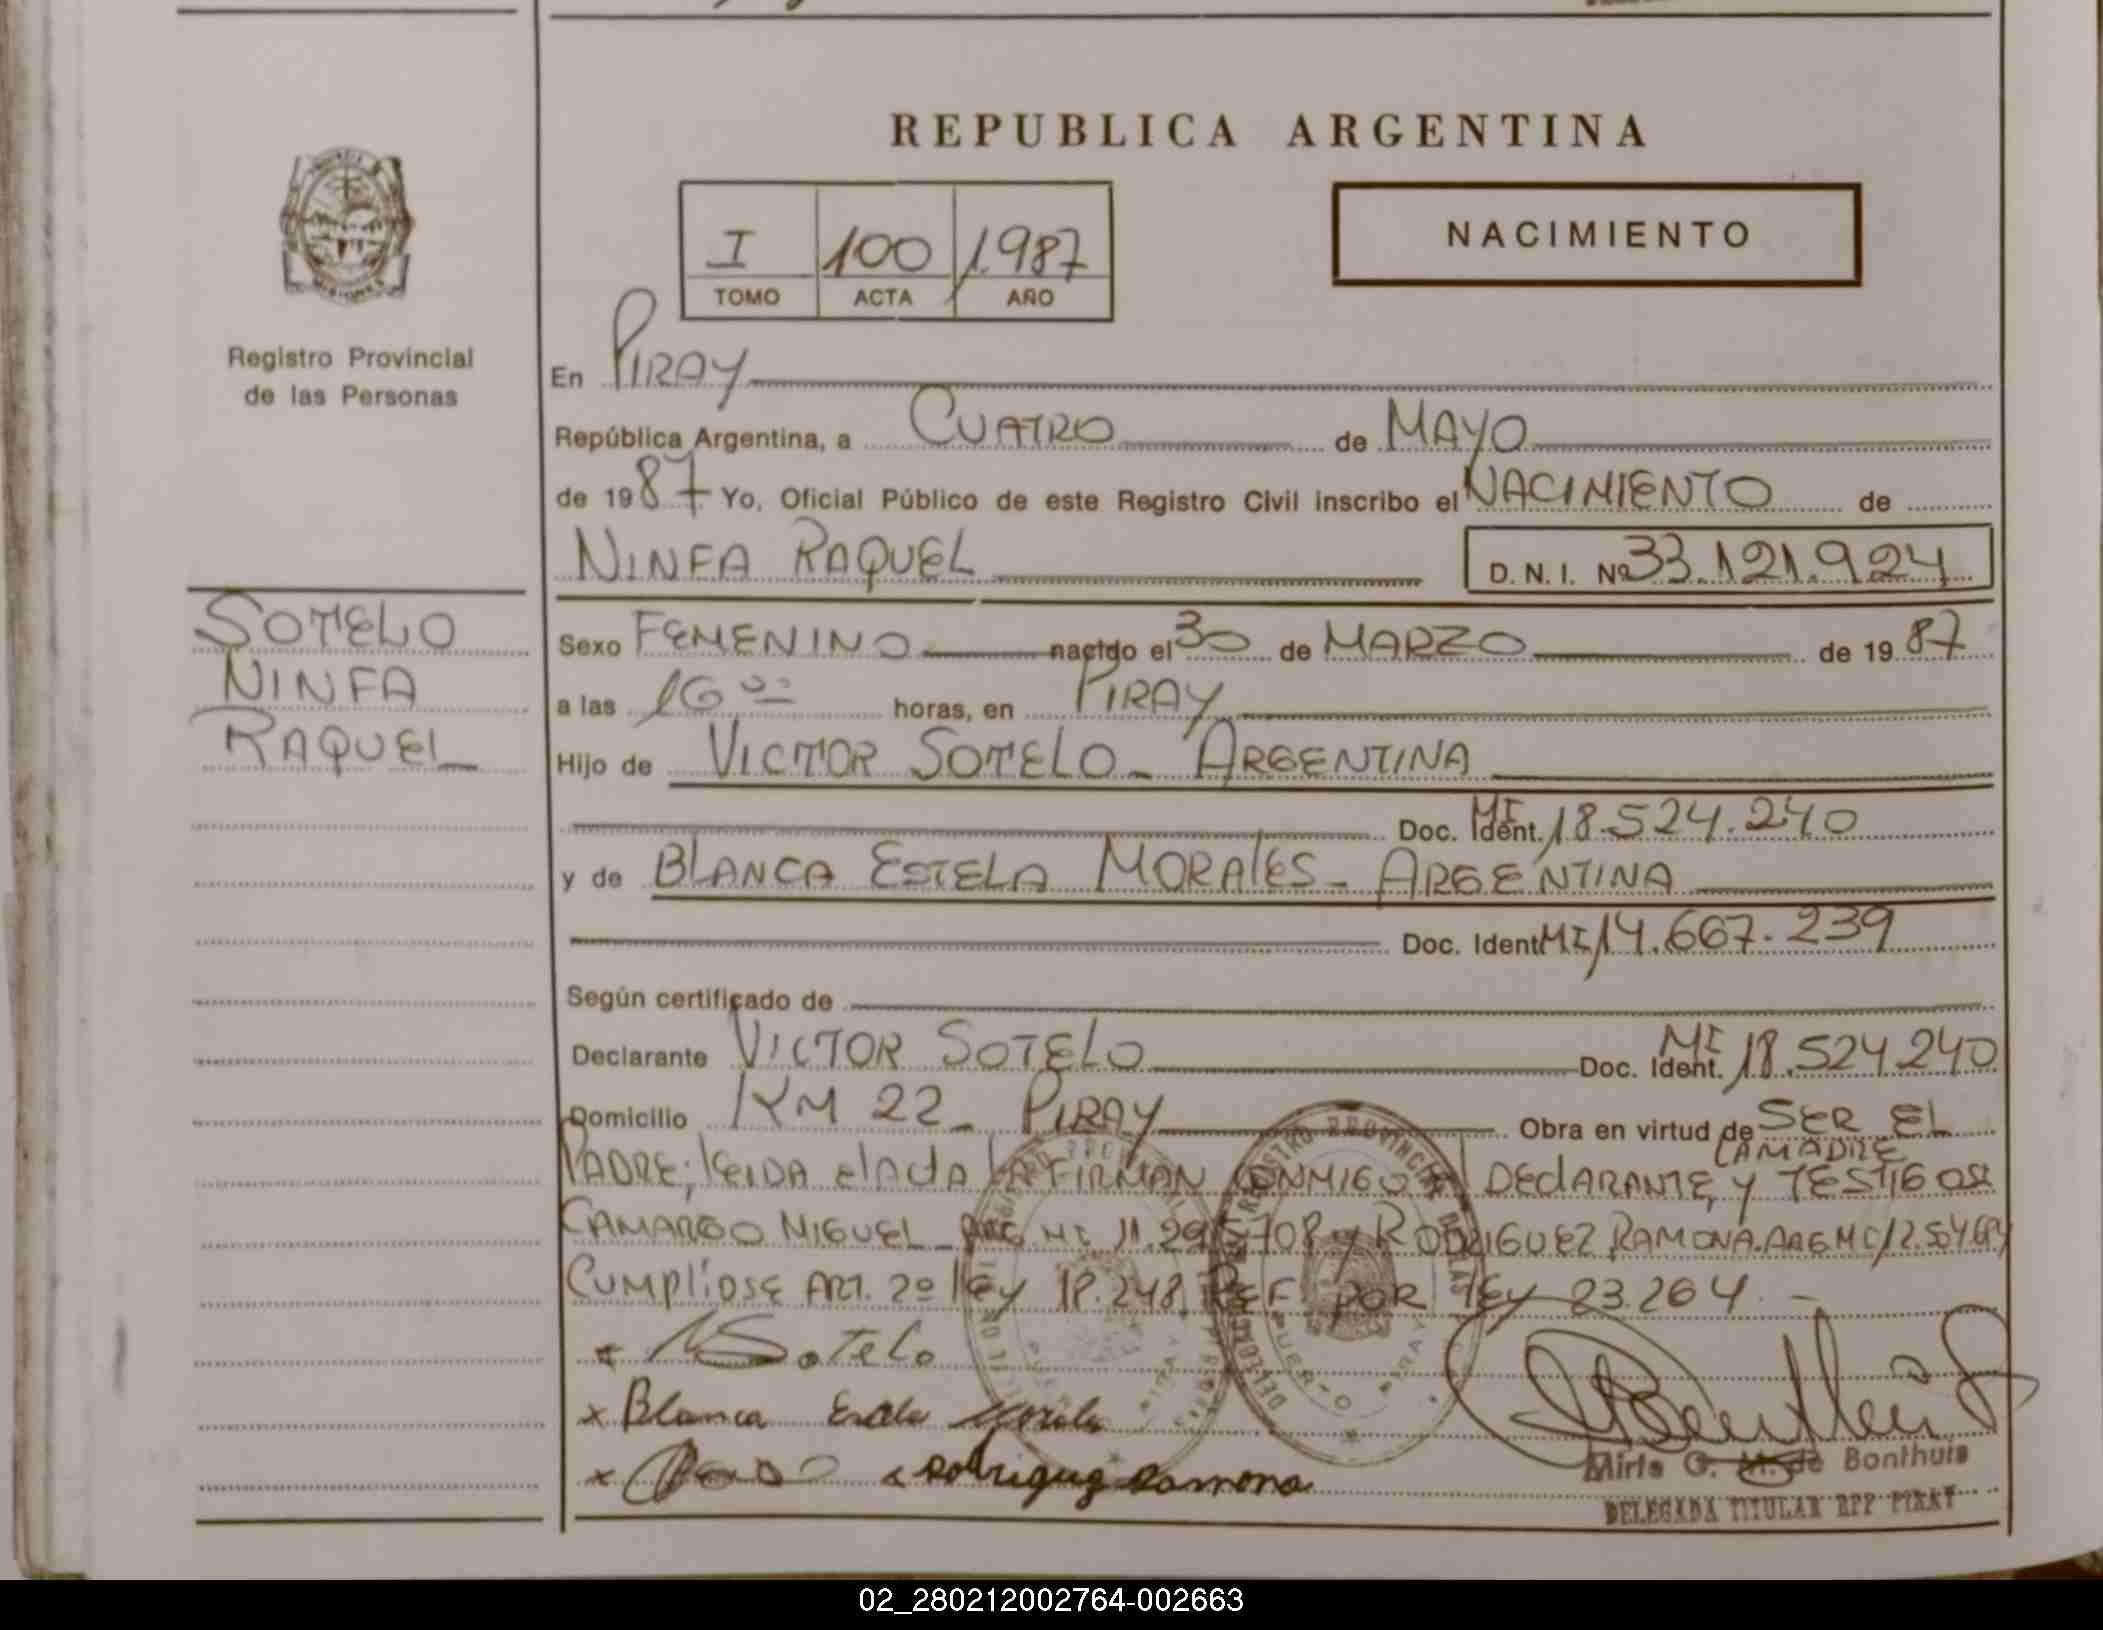 REPUBLICA ARGENTINA
I 100 1.987
TOMO ACTA AÑO
NACIMIENTO
MISIONES
Registro Provincial
de las Personas
En PIRAY
República Argentina, a CUATRO de MAYO
de 1987 Yo, Oficial Público de este Registro Civil inscribo el NACIMIENTO de
NINFA RAQUEL D. N. I. Nº 33.121.924
SOTELO
NINFA
RAQUEL
Sexo FEMENINO nacido el 30 de MARZO de 1987
a las 16 00 horas, en PIRAY
Hijo de VICTOR SOTELO - ARGENTINA
Doc. Ident. MI 18.524.240
y de BLANCA ESTELA MORALES - ARGENTINA
Doc. Ident. MI 14.667.239
Según certificado de
Declarante VICTOR SOTELO Doc. Ident. MI 18.524.240
Domicilio KM 22 - PIRAY Obra en virtud de SER EL
LA MADRE
PADRE; LEIDA el Acta LA FIRMAN CONMIGO El DEClARANTE, y TESTIGOS:
CAMARGO MIGUEL - ARG MI y RODRIGUEZ RAMONA. ARG MC
CUMPLIOSE ART. 2º lEy 18.248 REF. POR lEy 23.264. -
x Sotelo
x Blanca Estela Morales
x x Rodriguez Ramona
Mirta G. M. de Bonthuis
DELEGADA TITULAR RPP PIRAY
02_280212002764-002663